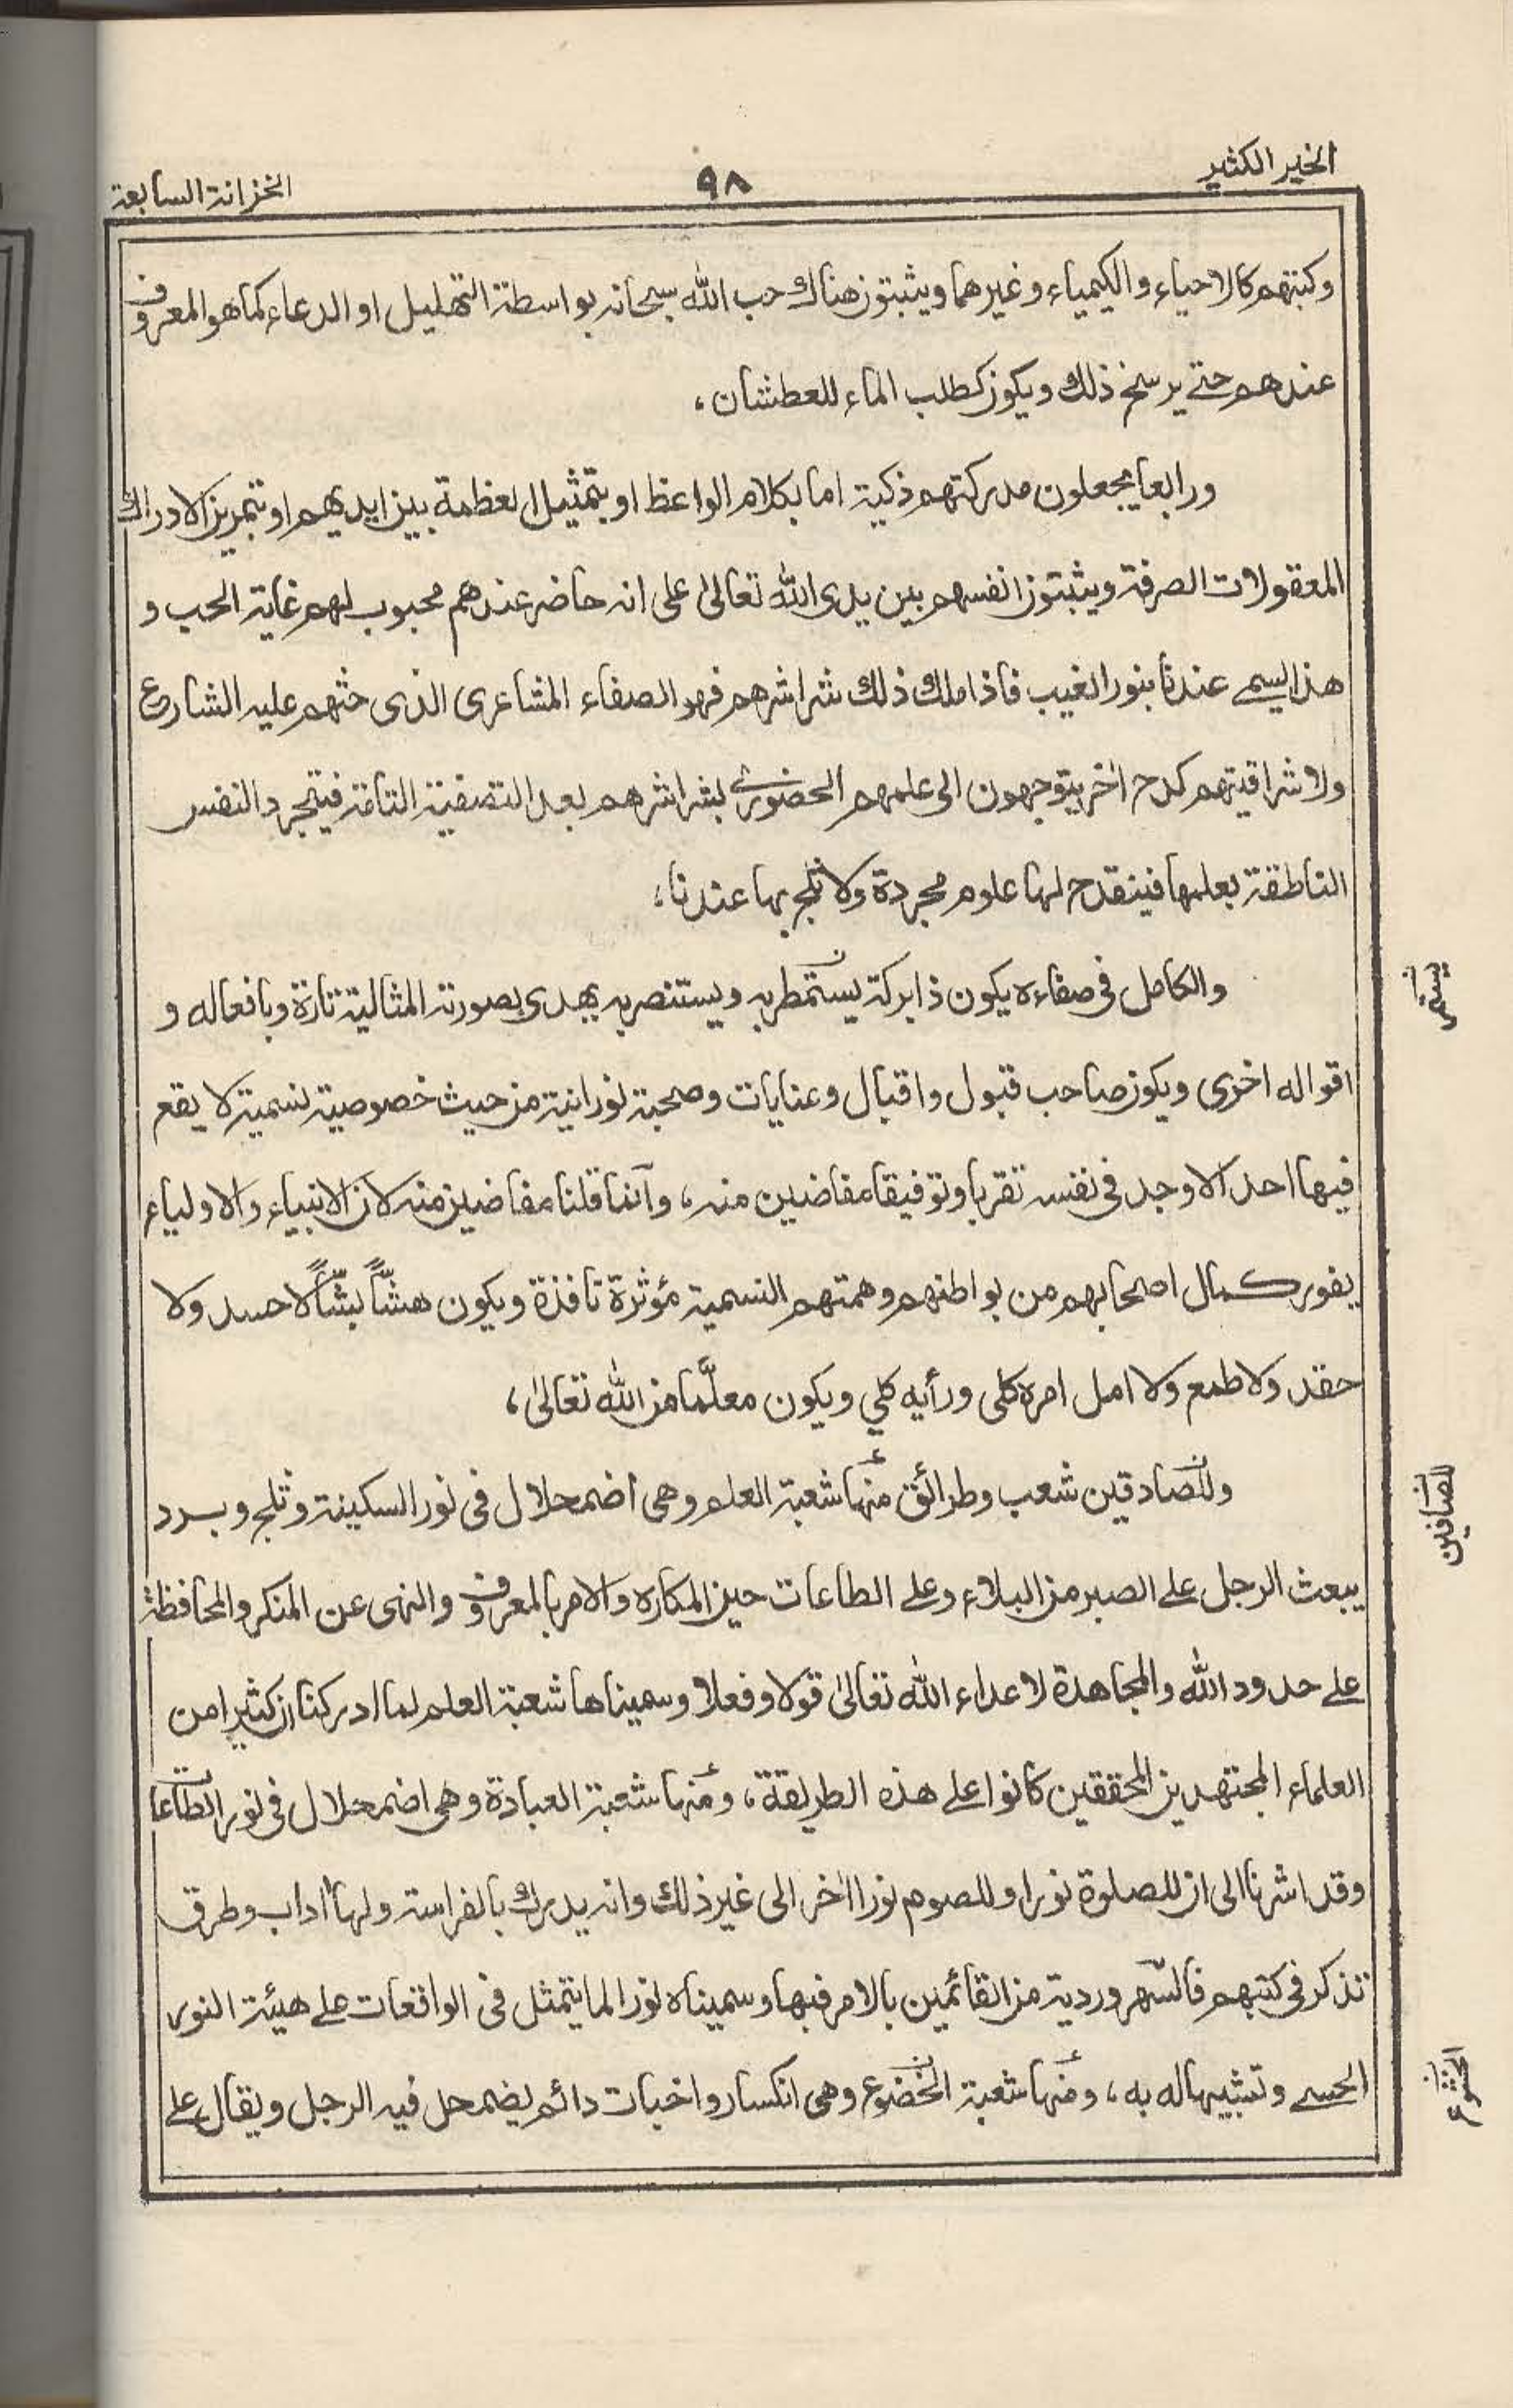 الخير الكثير
٩٨
الخزانة السابعة
وكتبهم كالاحياء والكيمياء وغيرهما ويثبتون هناك حب الله سبحانه بواسطة التهليل او الدعاء كما هو المعروف
عندهم حتے يرسخ ذلك ويكون كطلب الماء للعطشان،
ورابعا يجعلون مدركتهم ذكية اما بكلام الواعظ او بتمثيل العظمة بين ايديهم او بتمرين الادراك
المعقولات الصرفة ويثبتون انفسهم بين يدى الله تعالىٰ على انه حاضر عندهم محبوب لهم غاية الحب و
هذا يسمے عندنا بنور الغيب فاذا ملك ذلك شراشرهم فهو الصفاء المشاعرى الذى حثهم عليه الشارع
ولاشراقيتهم كدح اٰخر يتوجهون الى علمهم الحضورى بشراشرهم بعد التصفية التامة فيتجرد النفس
الناطقة بعلمها فينقدح لها علوم مجردة ولا ثلج بها عندنا،
والكامل فى صفاءه يكون ذا بركة يستمطر به ويستنصر به يهدى بصورته المثالية تارة وبافعاله و
يستمر
اقواله اخرى ويكون صاحب قبول واقبال وعنايات وصحبة نورانية من حيث خصوصية نسمية لا يقع
فيها احد الا وجد فى نفسه تقربا وتوفيقا مفاضين منه، وانما قلنا مفاضين منه لان الانبياء والاولياء
يفور كمال اصحابهم من بواطنهم وهمتهم النسمية مؤثرة نافذة ويكون هشّاً بشّاً لا حسد ولا
حقد ولا طمع ولا امل امره كلى ورأيه كلي ويكون معلَّما من الله تعالىٰ،
وللصادقين شعب وطرائق منها شعبة العلم وهى اضمحلال فى نور السكينة وثلج وبرد
للصافين
يبعث الرجل على الصبر من البلاء وعلى الطاعات حين المكاره والامر بالمعروف والنهى عن المنكر والمحافظة
علے حدود الله والمجاهدة لاعداء الله تعالىٰ قولا وفعلا وسميناها شعبة العلم لما ادركنا ان كثيرا من
العلماء المجتهدين المحققين كانوا علے هذه الطريقة، ومنها شعبة العبادة وهى اضمحلال فى نور الطاعات
وقد اشرنا الى ان للصلوة نورا وللصوم نورا اٰخر الى غير ذلك وانه يدرك بالفراسة ولها اٰداب وطرق
تذكر فى كتبهم فالسهروردية من القائمين بالامر فيها وسميناه نورا لما يتمثل فى الواقعات علے هيئة النور
الحسے وتشبيها له به، ومنها شعبة الخضوع وهى انكسار واخبات دائم يضمحل فيه الرجل ويقال على
الخشوع